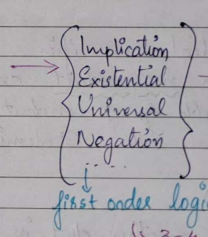 Implication
Existential
Universal
Negation
.. ...
first order logic